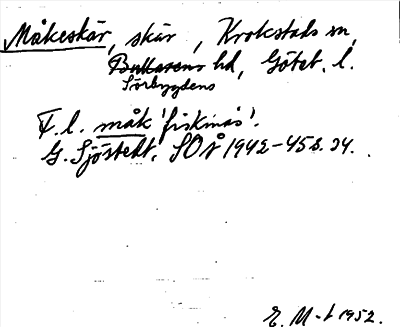 Måkeskär, skär, Krokstads sn,
Bullarens hd, Göteb. l.
Sörbygdens
F. l. måk 'fiskmås'.
G. Sjöstedt, SOÅ 1942-45 s. 24.
E. M-t 1952.